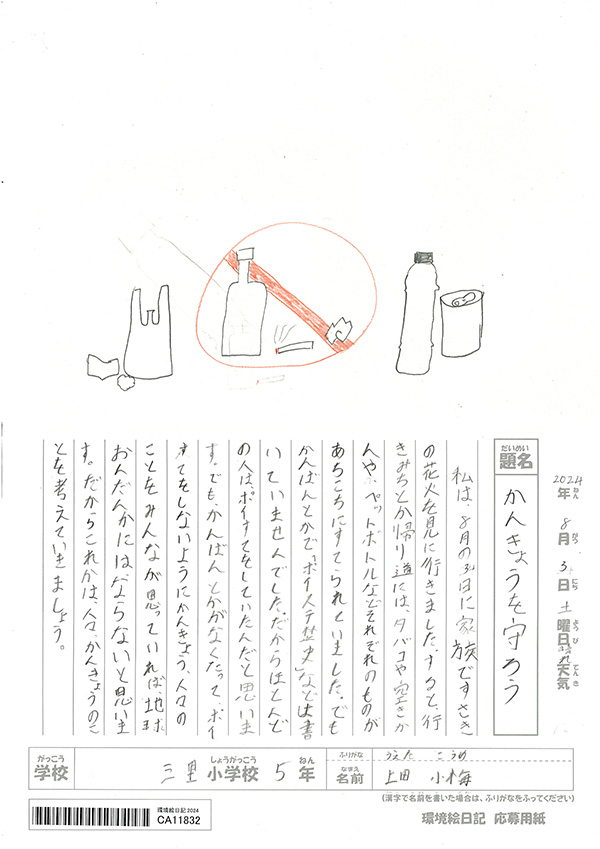 2024年ねん 8月がつ 3日にち 土曜日ようび 晴れ天気てんき
だいめい
題名
かんきょうを守ろう
私は、8月の3日に家族でさきさき
の花火を見に行きました。すると、行
きみちとか帰り道には、タバコや空きか
んや、ペットボトルなどそれぞれのものが
あちこちにすてられていました。でも
かんばんとかで「ポイステ歴史」などは書
いていませんでした。だからほとんど
の人は、ポイすてをしていたんだと思いま
す。でも、かんばんとかがなくたって、ポイ
すてをしないようにかんきょう、人々の
ことをみんなが思っていれば、地球
おんだんかにはならないと思いま
す。だからこれかは、人々、かんきょうのこ
とを考えていきましょう。
がっこう
学校
三里 小学校しょうがっこう 5年ねん
ふりがな うえた こうめ
なまえ
名前 上田 小梅
(漢字で名前を書いた場合は、ふりがなをふってください)
環境絵日記 2024
CA11832
環境絵日記 応募用紙